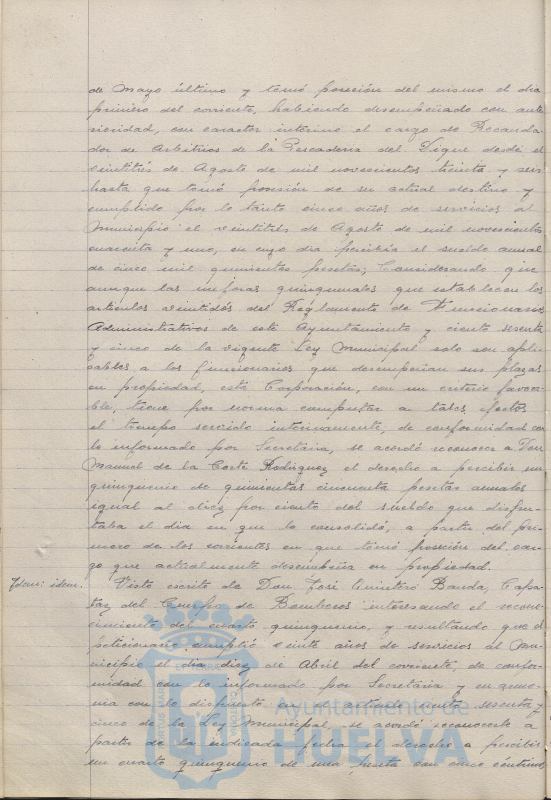 de Mayo último y tomó posesión del mismo el dia
primero del corriente, habiendo desempeñado con ante
rioridad, con caracter interino el cargo de Recauda
dor de Arbitrios de la Pescaderia del Dique desde el
veintitrés de Agosto de mil novecientos treinta y seis
hasta que tomó posesión de su actual destino y
cumplido por lo tanto cinco años de servicios al
Municipio el veintitrés de Agosto de mil novecientos
cuarenta y uno, en cuyo dia percibía el sueldo anual
de cinco mil quinientas pesetas; Considerando que
aunque las mejoras quinquenales que establecen los
artículos veintidós del Reglamento de Funcionarios
Administrativos de este Ayuntamiento y ciento sesenta
y cinco de la vigente Ley Municipal solo son apli
cables a los funcionarios que desempeñan sus plazas
en propiedad, esta Corporación, con un criterio favora
ble, tiene por norma computar a tales efectos
el tiempo servido interinamente, de conformidad con
lo informado por Secretaria, se acordó reconocer a Don
Manuel de la Corte Rodriguez el derecho a percibir un
quinquenio de quinientas cincuenta pesetas anuales
igual al diez por ciento del sueldo que disfru
taba el dia en que lo consolidó, a partir del pri
mero de los corrientes en que tomó posesión del car
go que actualmente desempeña en propiedad.
Idem: idem. Visto escrito de Don José Quintero Banda, Capa
taz del Cuerpo de Bomberos interesando el recono
cimiento del cuarto quinquenio, y resultando que el
peticionario cumplió veinte años de servicios al Mu
nicipio el dia diez de Abril del corriente, de confor
midad con lo informado por Secretaria y en armo
nia con lo dispuesto en el artículo ciento sesenta y
cinco de la Ley Municipal, se acordó reconocerle a
partir de la indicada fecha el derecho a percibir
un cuarto quinquenio de una peseta con cinco céntimos
Ayuntamiento de
HUELVA